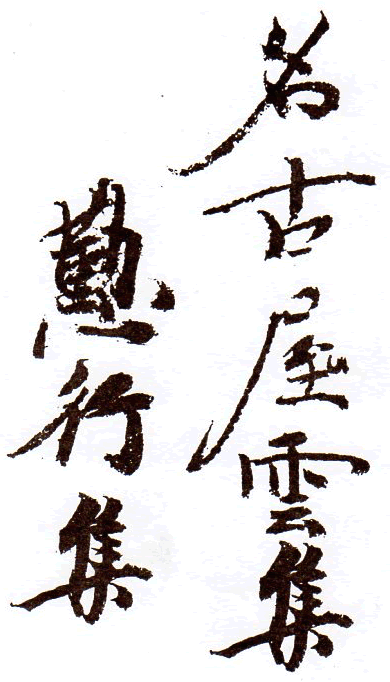 名古屋雲集
懃行集